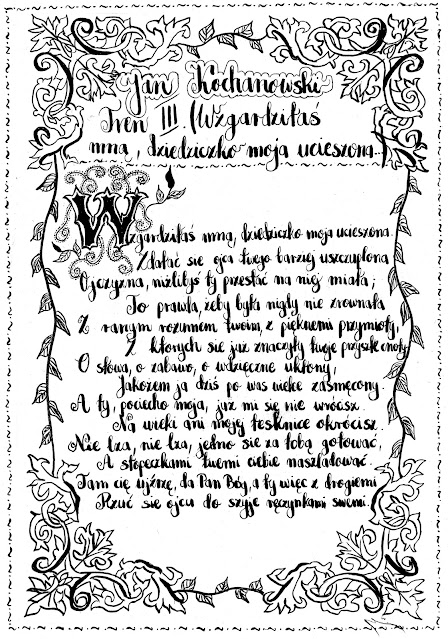 Jan Kochanowski
Tren III (Wzgardziłaś
mną, dziedziczko moja ucieszona...
Wzgardziłaś mną, dziedziczko moja ucieszona.
Zdałać się ojca twego barziej uszczuplona
Ojczyzna, niżliby ty przestać na niej miała;
To prawda, żeby była nigdy nie zrównała
Z ranym rozumem twoim, z pięknemi przymioty,
Z których się już znaczyły twoje przyszłe cnoty
O słowa, o zabawo, o wdzięczne ukłony,
Jakożem ja dziś po was wielce zasmęcony.
A ty, pociecho moja, już mi się nie wrócisz.
Na wieki ani mojej tesknice okrócisz.
Nie lza, nie lza, jedno się za tobą gotować,
A stopeczkami twemi ciebie naszladować.
Tam cię ujźrzę, da Pan Bóg, a ty więc z drogiemi
Rzuć się ojcu do szyje ręczynkami swemi.